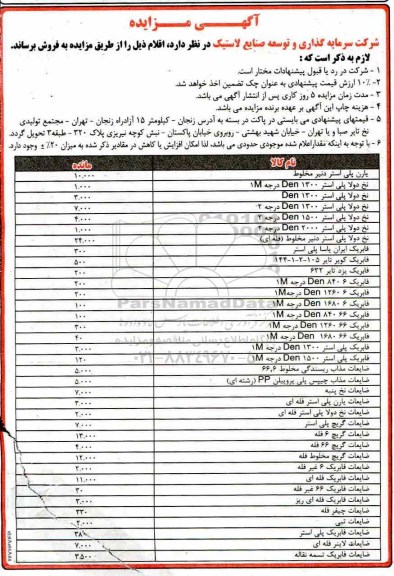 آگهـی مـزایده
شرکت سرمایه گذاری و توسعه صنایع لاستیک در نظر دارد، اقلام ذیل را از طریق مزایده به فروش برساند.
لازم به ذکر است که :
۱ - شرکت در رد یا قبول پیشنهادات مختار است.
۲- ۱۰٪ ارزش قیمت پیشنهادی به عنوان چک تضمین اخذ خواهد شد.
۳ - مدت زمان مزایده ۵ روز کاری پس از انتشار آگهی می باشد.
۴ - هزینه چاپ این آگهی بر عهده برنده مزایده می باشد.
۵ - قیمتهای پیشنهادی می بایستی در پاکت در بسته به آدرس زنجان - کیلومتر ۱۵ آزادراه زنجان - تهران - مجتمع تولیدی
نخ تایر صبا و یا تهران - خیابان شهید بهشتی - روبروی خیابان پاکستان - نبش کوچه نبریزی پلاک ۳۲۰ - طبقه۳ تحویل گردد.
۶ - با توجه به اینکه مقدار اعلام شده موجودی حدودی می باشد، لذا امکان افزایش یا کاهش در مقادیر ذکر شده به میزان ۲۰٪ ± وجود دارد.
نام کالا مانده
یارن پلی استر دنیر مخلوط ۱۰.۰۰۰
نخ دولا پلی استر ۱۳۰۰ Den درجه 1M ۱.۰۰۰
نخ دولا پلی استر ۱۳۰۰ Den ۳.۰۰۰
نخ دولا پلی استر ۱۳۰۰ Den درجه ۲ ۷.۰۰۰
نخ دولا پلی استر ۱۵۰۰ Den درجه ۲ ۴.۰۰۰
نخ دولا پلی استر ۲۰۰۰ Den درجه ۲ ۱.۰۰۰
نخ دولا پلی استر دنیر مخلوط (فله ای) ۲۴.۰۰۰
فابریک ایران یاسا پلی استر ۳۰۰
فابریک کویر تایر ۱۰۵-۲-۱۴۴۱ ۵۰۰
فابریک یزد تایر ۶۳۲ ۲۰۰
فابریک ۶ ۸۴۰ Den درجه 1M ۲۰۰
فابریک ۶ ۱۲۶۰ Den درجه 1M ۲۰۰
فابریک ۶ ۱۶۸۰ Den درجه 1M ۱۰۰
فابریک ۶۶ ۸۴۰ Den درجه 1M ۱۰۰
فابریک ۶۶ ۱۲۶۰ Den درجه 1M ۳۰۰
فابریک ۶۶ ۱۶۸۰ Den درجه 1M ۴۰
فابریک پلی استر ۱۳۰۰ Den درجه 1M ۳.۰۰۰
فابریک پلی استر ۱۵۰۰ Den درجه 1M ۱۲۰
ضایعات مذاب ریسندگی مخلوط ۶۶,۶ ۵.۰۰۰
ضایعات مذاب چیپس پلی پروپیلن PP (رشته ای) ۵.۰۰۰
ضایعات نخ پنبه ۷.۰۰۰
ضایعات یارن پلی استر فله ای
ضایعات نخ دولا پلی استر فله ای ۲.۰۰۰
ضایعات گریج پلی استر ۷.۰۰۰
ضایعات گریج ۶ فله ۱۳.۰۰۰
ضایعات گریج ۶۶ فله ۴.۰۰۰
ضایعات گریج مخلوط فله ۱۲.۰۰۰
ضایعات فابریک ۶ غیر فله ۲.۰۰۰
ضایعات فابریک فله ای ۱۱.۰۰۰
ضایعات فابریک ۶۶ غیر فله ۳۰
ضایعات فابریک فله ای ریز ۳.۰۰۰
ضایعات چیفر فله ۳۲۰
ضایعات تبی ۲.۰۰۰
ضایعات فابریک پلی استر
ضایعات لاینر فله ای ۷.۰۰۰
ضایعات فابریک تسمه نقاله ۳.۵۰۰
ParsNamadData
۰۲۱-۸۸۳۴۹۶۷۰-۵